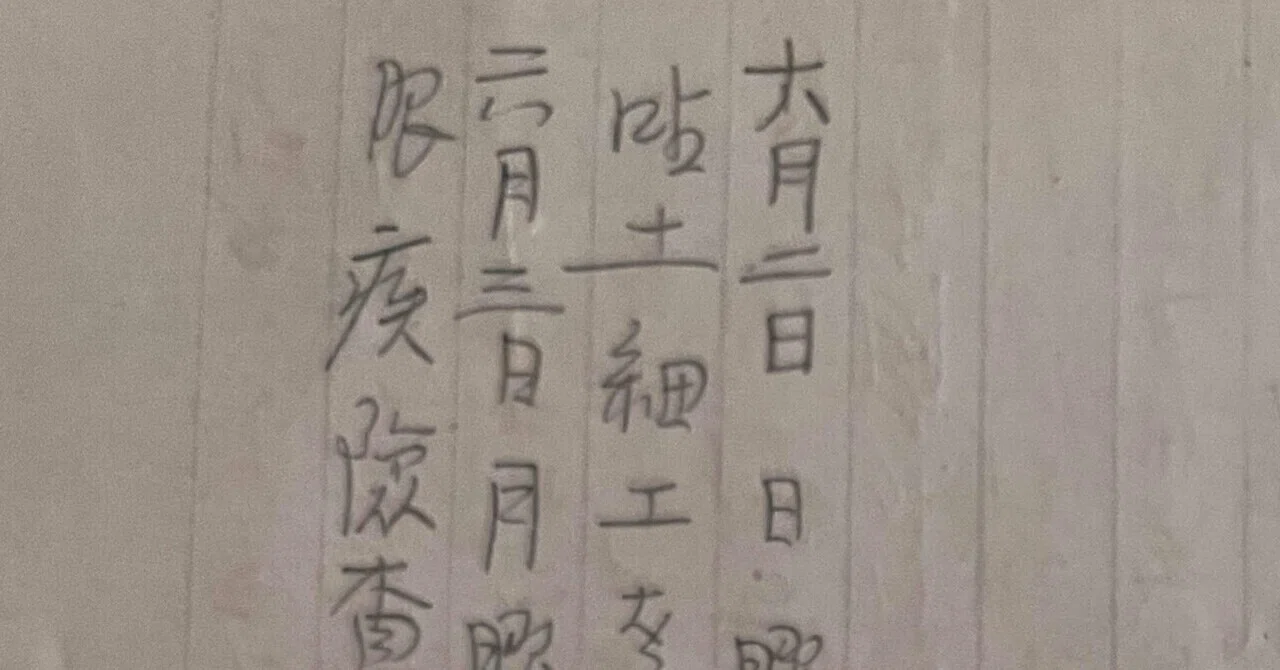 六月二日 日曜
粘土細工
六月三日 月曜
眼疾検査